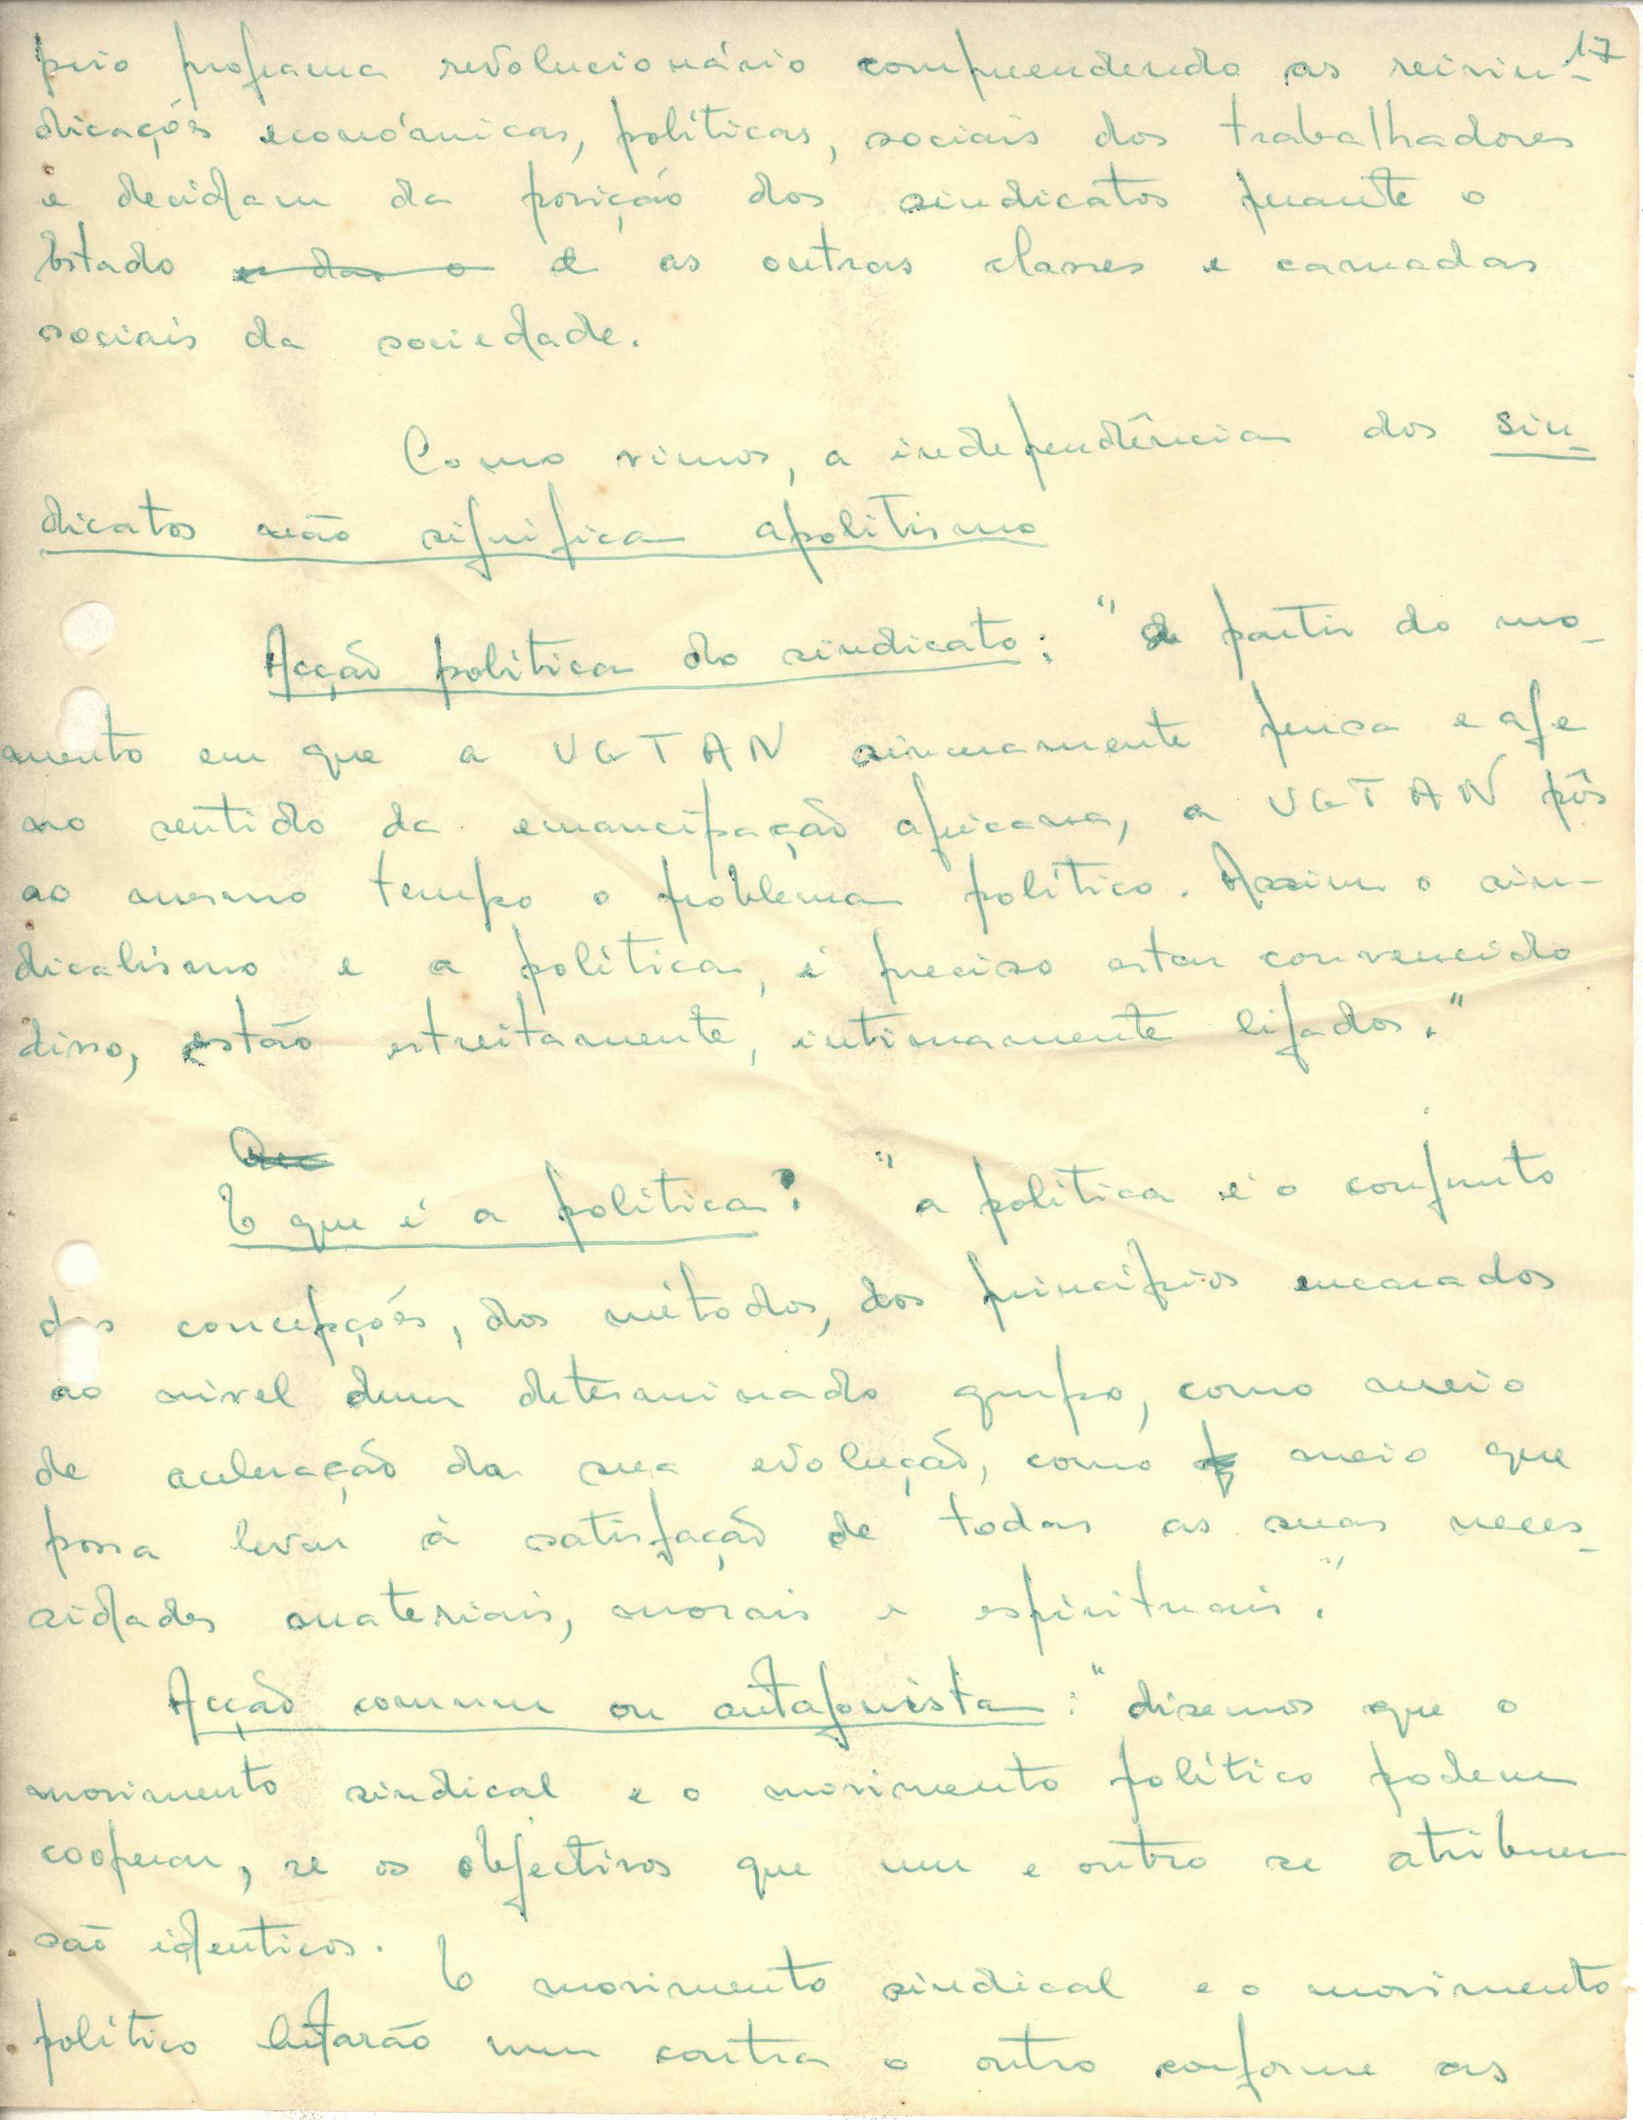 17
prio programa revolucionário compreendendo as reivin-
dicações económicas, políticas, sociais dos trabalhadores
e decidam da posição dos sindicatos perante o
Estado e das o e as outras classes e camadas
sociais da sociedade.
Como vimos, a independência dos sin-
dicatos não significa apolitismo
Acção política do sindicato: "a partir do mo-
mento em que a UGTAN sinceramente pensa e age
no sentido da emancipação africana, a UGTAN pôs
ao mesmo tempo o problema político. Assim o sin-
dicalismo e a política, é preciso estar convencido
disso, estão estreitamente, intimamente ligados."
O que é a política? "a política é o conjunto
das concepções, dos métodos, dos princípios encarados
ao nivel dum determinado grupo, como meio
de aceleração da sua evolução, como meio que
possa levar à satisfação de todas as suas neces-
sidades materiais, morais e espirituais."
Acção comum ou antagonista: "dizemos que o
movimento sindical e o movimento político podem
cooperar, se os objectivos que um e outro se atribuem
são identicos. O movimento sindical e o movimento
político lutarão um contra o outro conforme as